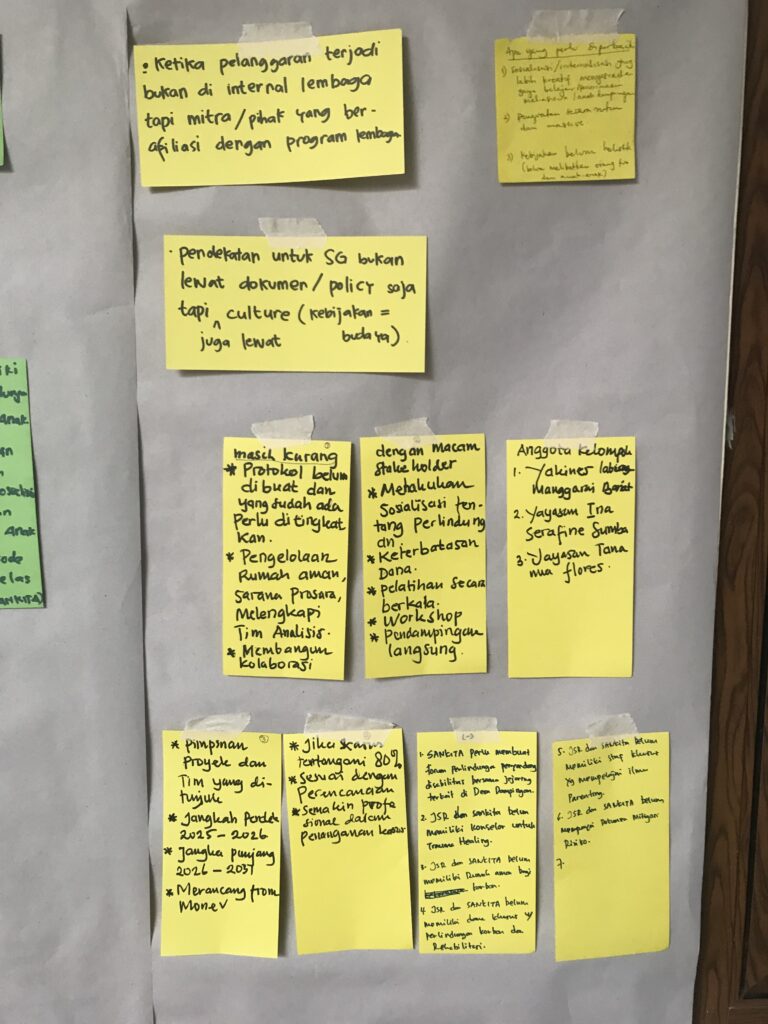 • Ketika pelanggaran terjadi
bukan di internal lembaga
tapi mitra/pihak yang ber-
afiliasi dengan program lembaga
Apa yang perlu diperbaiki
1) Sosialisasi/internalisasi yang
lebih kreatif
gaya belajar
2) Penguatan secara rutin
dan
3) Kebijakan belum holistik
(belum melibatkan orang tua
dan anak-anak)
• pendekatan untuk SG bukan
lewat dokumen/policy saja
tapi ^ culture (kebijakan =
juga lewat budaya)
masih kurang
* Protokol belum
dibuat dan
yang sudah ada
Perlu ditingkat
kan.
* Pengelolaan
Rumah aman,
sarana Prasara,
Melengkapi
Tim Analisis.
* Membangun
kolaborasi
dengan macam
stake holder
* Melakukan
Sosialisasi ten-
tang Perlindung
an.
* Keterbatasan
Dana.
* pelatihan secara
berkala.
* Workshop
* Pendampingan
langsung.
Anggota Kelompok
1. Yakines
Manggarai Barat
2. Yayasan Ina
Serafine Sumba
3. Yayasan Tana
nua flores.
iki
Anak
an
n
Anak
ode
elas
* Pimpinan
Proyek dan
Tim yang di-
tunjuk
* Jangkah Pendek
2025-2026
* Jangka panjang
2026-2031
* Merancang from
Monev
* Jika kasus
tertangani 80%
* Sesuai dengan
Perencanaan
* Semakin profe
sional dalam
penanganan kasus
1. SANKITA Perlu membuat
forum Perlindungan penyandang
disabilitas bersama jejaring
terkait di Desa Dampingan.
2. JSR dan sankita belum
memiliki konselor untuk
Trauma Healing.
3. JSR dan SANKITA belum
memiliki Rumah aman bagi
korban.
4. JSR dan SANKITA belum
memiliki dana khusus u/
perlindungan korban dan
Rehabilitasi.
5. JSR dan SANKITA belum
Memiliki staf khusus
yg mempelajari ilmu
Parenting.
6. JSR dan SANKITA belum
mempunyai Dokumen Mitigasi
Risiko.
7.